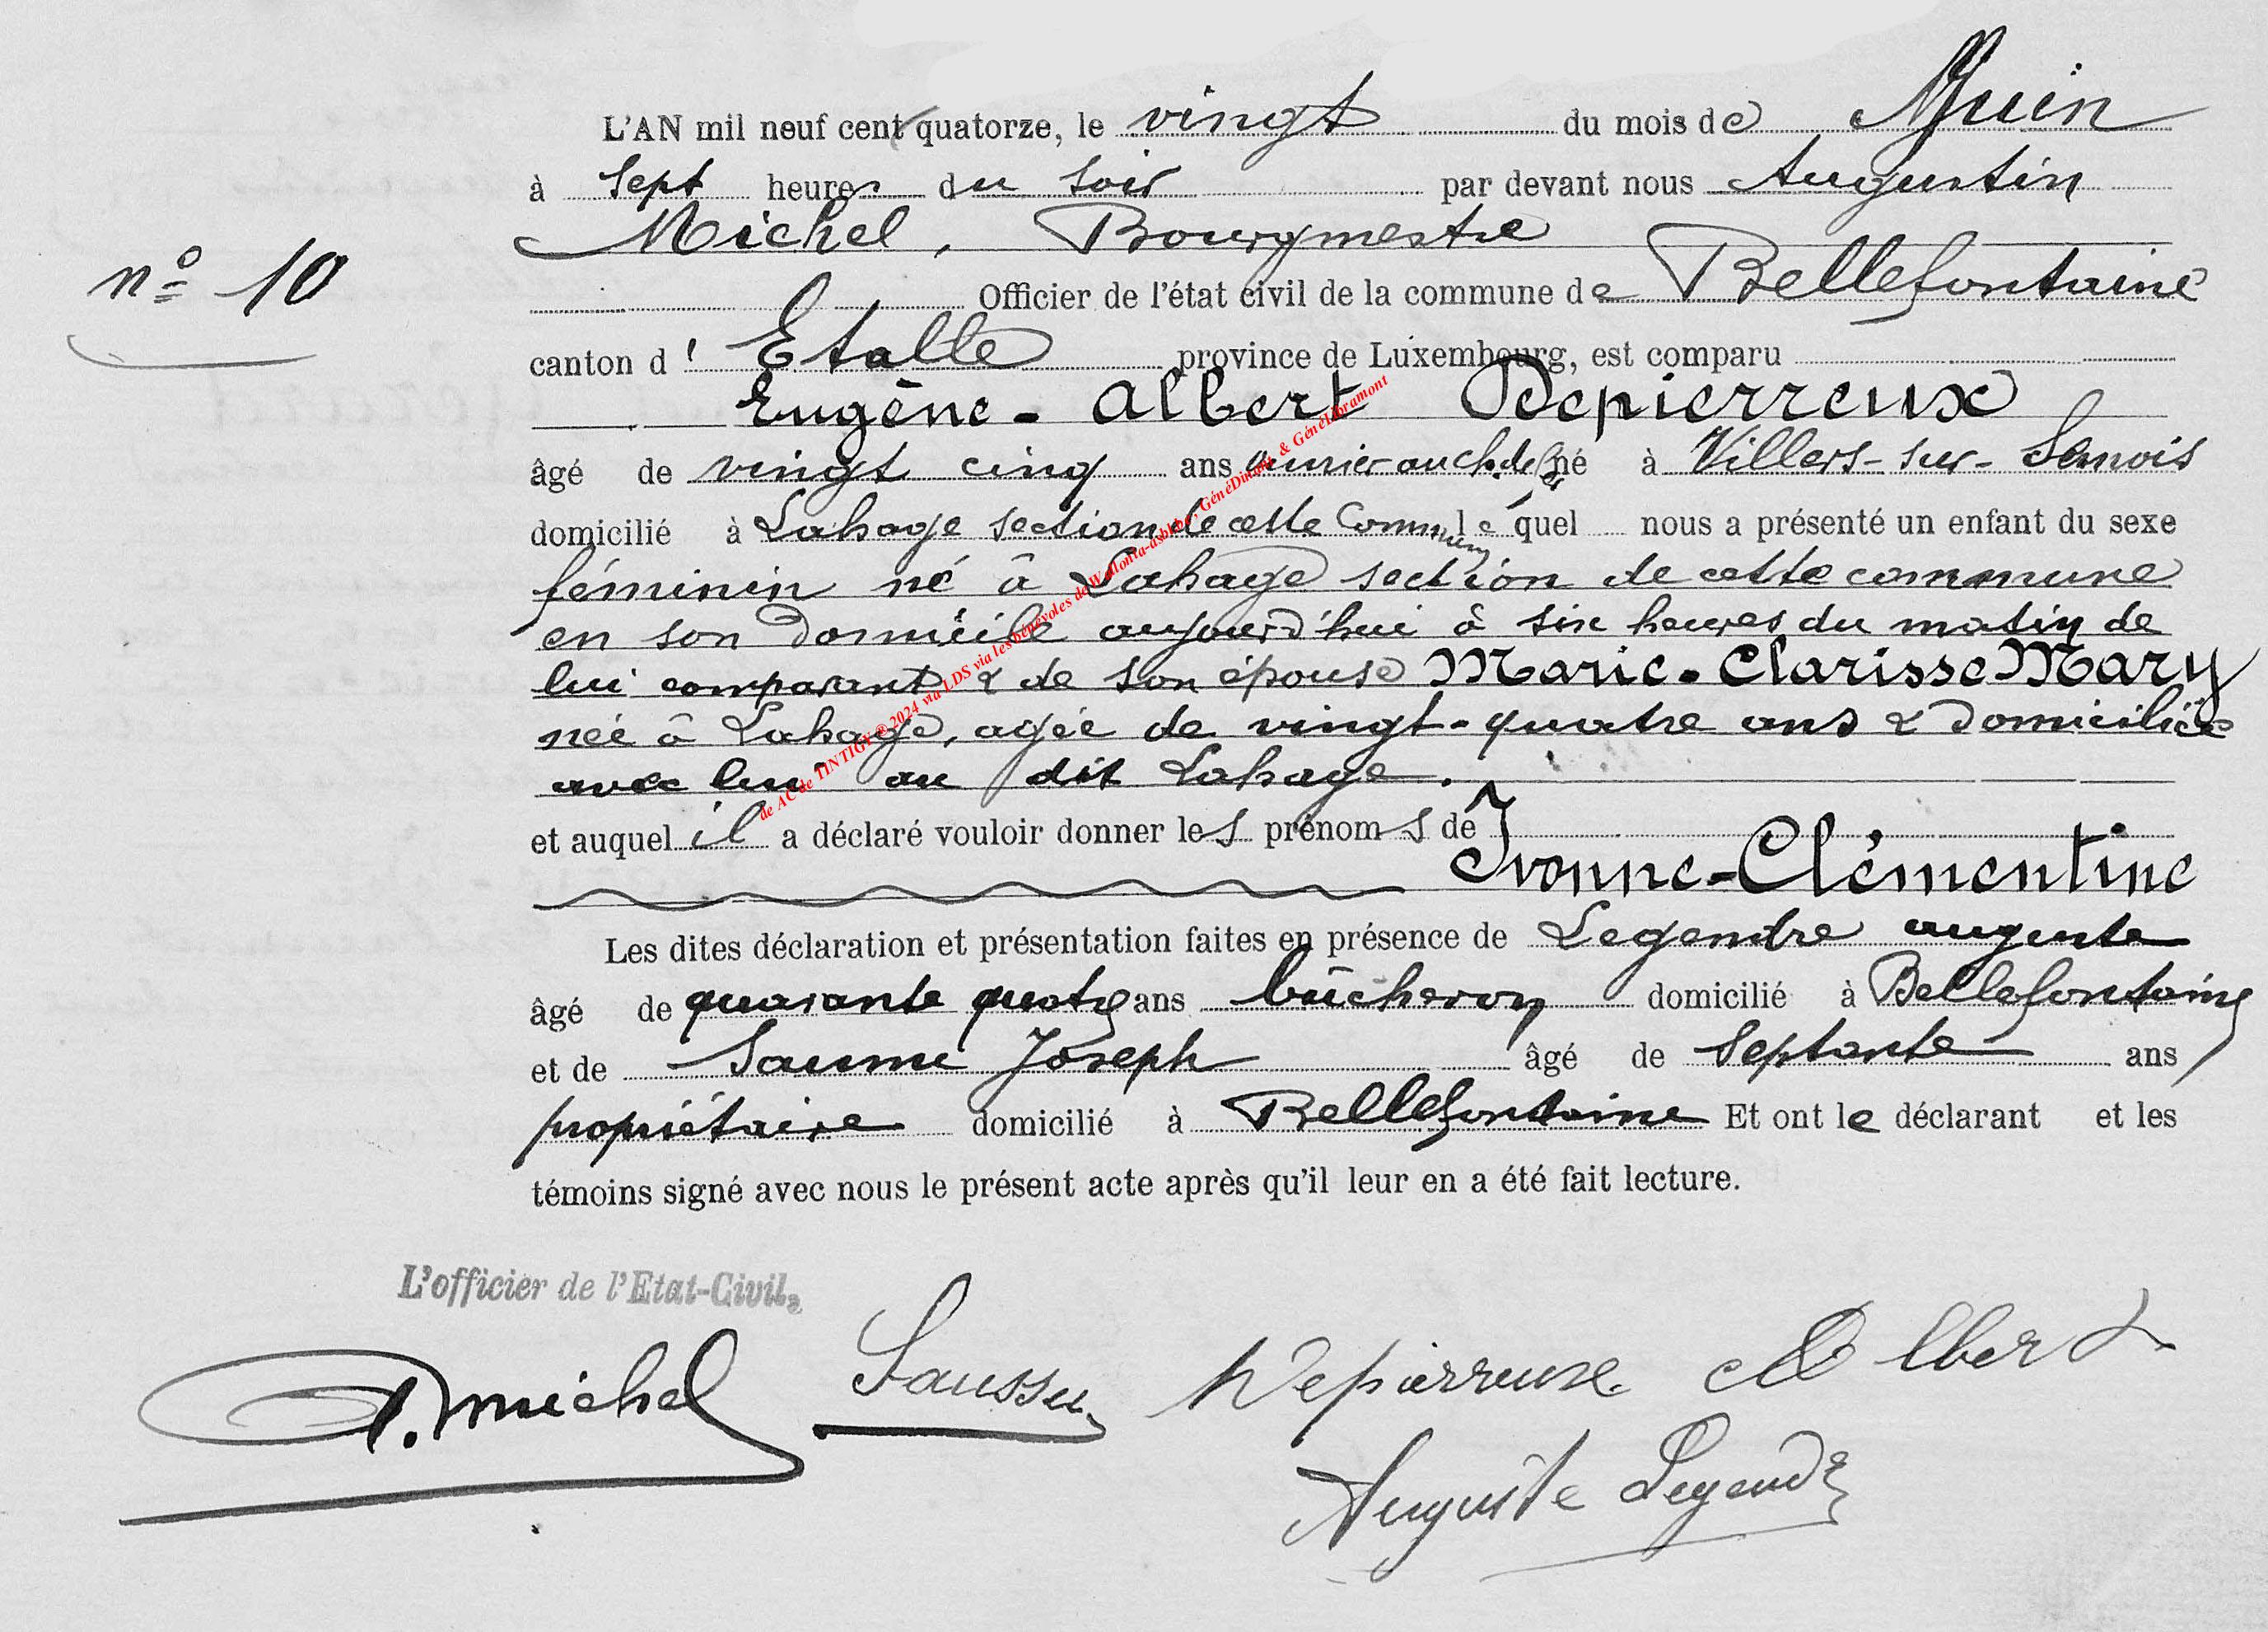 L'AN mil neuf cent quatorze, le vingt du mois de Juin
à sept heures du soir par devant nous Augustin
Michel, Bourgmestre
n° 10
Officier de l'état civil de la commune de Bellefontaine
canton d'Etalle province de Luxembourg, est comparu
Eugène-Albert Depierreux
âgé de vingt cinq ans ouvrier au ch. de fer né à Villers-sur-Semois
domicilié à Lahage section de cette Commune lequel nous a présenté un enfant du sexe
féminin né à Lahage section de cette commune
en son domicile aujourd'hui à six heures du matin de
lui comparant & de son épouse Marie-Clarisse Mary
née à Lahage, agée de vingt-quatre ans & domiciliée
avec lui au dit Lahage.
et auquel il a déclaré vouloir donner les prénoms de
Ivonne-Clémentine
Les dites déclaration et présentation faites en présence de Legendre auguste
âgé de quarante quatre ans bûcheron domicilié à Bellefontaine
et de Joseph âgé de septante ans
propriétaire domicilié à Bellefontaine Et ont le déclarant et les
témoins signé avec nous le présent acte après qu'il leur en a été fait lecture.
L'officier de l'Etat-Civil,
A. Michel Depierreux Albert
Auguste Legendre
de AC de TINTIGY @ 2024 via LDS via les bénévoles de Wallonia-asbl.be, GénéDinant & GénéLibramont